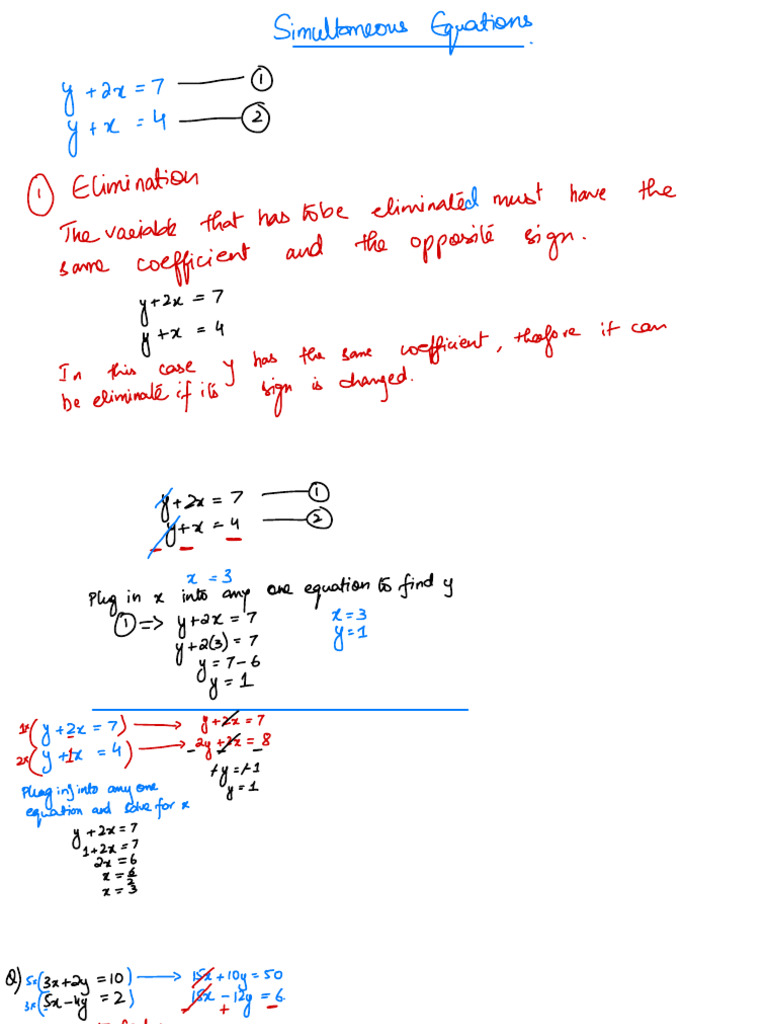 Simultaneous Equations.
y + 2x = 7 ——— ①
y + x = 4 ——— ②
① Elimination
The variable that has to be eliminated must have the
same coefficient and the opposite sign.
y+2x = 7
y+x = 4
In this case y has the same coefficient, therefore it can
be eliminate if its sign is changed.
y+2x = 7 ——— ①
y+x = 4 ——— ②
x = 3
Plug in x into any one equation to find y
① => y+2x = 7
y+2(3) = 7
y = 7-6
y = 1
x = 3
y = 1
1x(y+2x = 7) → y+2x = 7
2x(y+1x = 4) → 2y+2x = 8
+y = +1
y = 1
Plug in y into any one
equation and solve for x
y+2x = 7
1+2x = 7
2x = 6
x = 6/2
x = 3
Q) 5x(3x+2y = 10) → 15x+10y = 50
3x(5x-4y = 2) 15x-12y = 6